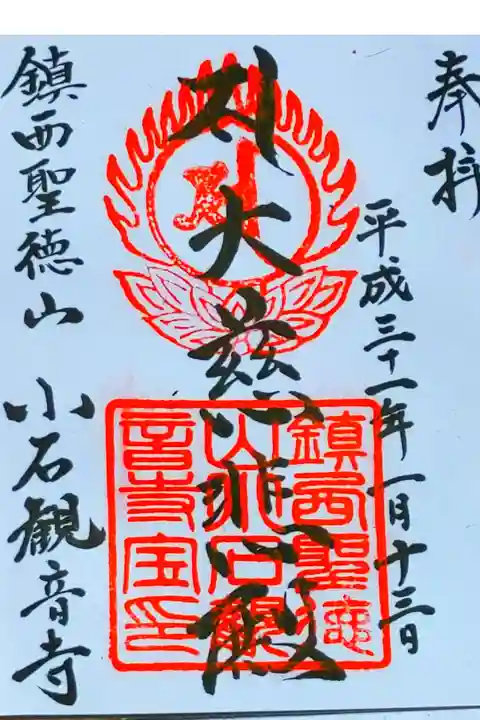 奉拝
平成三十一年一月十三日
大慈悲殿
鎮西聖徳
山小石観
音寺宝印
鎮西聖徳山 小石観音寺